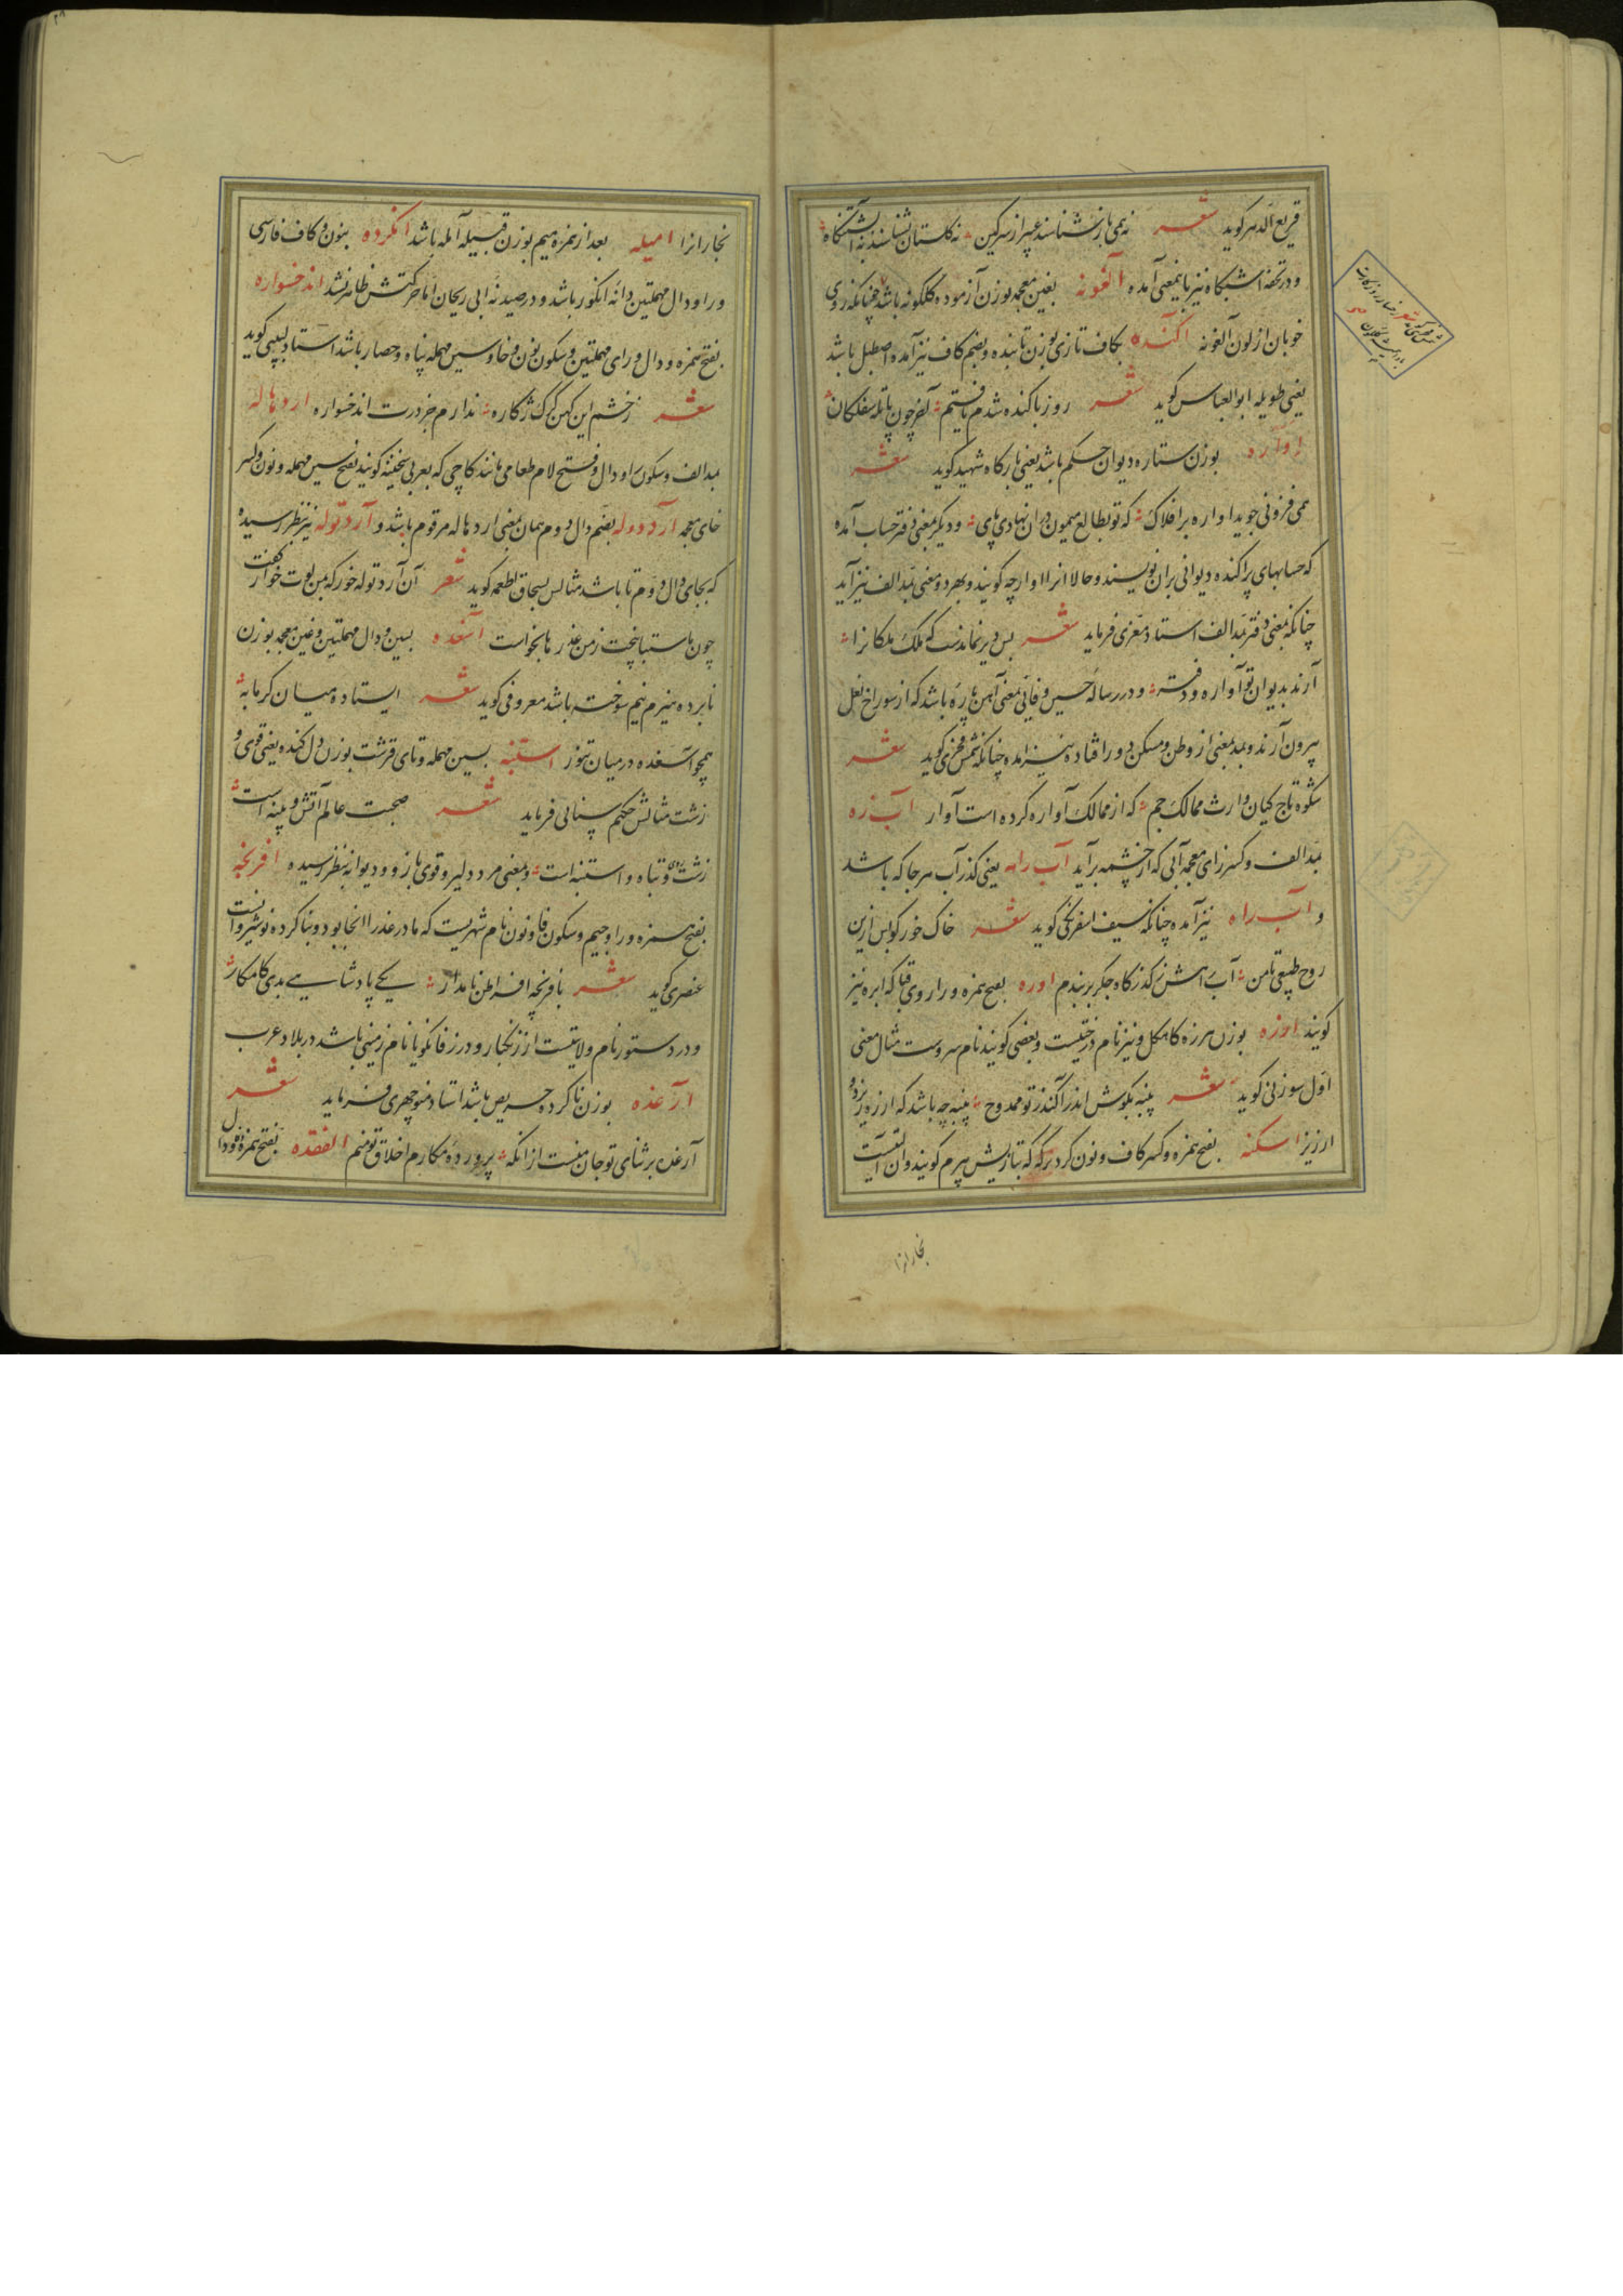 قریع الدهر کوید شعر نه می باز شناسند عبیر از سرکین نه کلستان بشناسند ز آبشتنکاه
و در تحفه آبشتکاه نیز باینمعنی آمده آلغونه بغین معجمه بوزن آزموده کلکونه باشد چنانکه روی
خوبان از لون آلغونه آکنده بکاف تازی بوزن تابنده و بضم کاف نیز آمده اصطبل باشد
یعنی طویله ابو العباس کوید شعر روز باکنده شدم یافتم آخر چون پاتله سفلکان
اواره بوزن ستاره دیوان حکم باشد یعنی بارکاه شهید کوید شعر
همی فزونی جوید اواره بر افلاک که تو بطالع میمون دران نهادی پای و دیکر بمعنی دفتر حساب آمده
که حسابهای پراکنده دیوانی بران نویسند و حالا انرا اوارجه کویند و بهر دو معنی بمد الف نیز آید
چنانکه بمعنی دفتر بمد الف استاد معزی فرماید شعر بس دیر نماندست که ملک ملکانرا
آرند بدیوان تو آواره و دفتر و در رساله حسین وفائی بمعنی آهن پاره باشد که از سوراخ نعل
بیرون آرند و بمد بمعنی از وطن و مسکن دور افتاده نیز امده چنانکه شمس فخری کوید شعر
شکوه تاج کیان وارث ممالک جم که از ممالک آواره کرده است آوار آب زه
بمد الف و کسر زای معجمه آبی که از چشمه برآید آب راهه یعنی کذر آب هر جا که باشد
و آب راه نیز آمده چنانکه سیف اسفرنکی کوید شعر خاک خور کو پس ازین
روح طبیعی تا من آب اهش ز کذرکاه جکر بربندم اوره بفتح همزه و را روی قبا که ابره نیز
کویند ارزه بوزن هرزه کاهکل و نیز نام درختیست و بعضی کویند نام سروست مثال معنی
اول سوزنی کوید شعر پنبه بکوش اندر آکنند ز تو ممدوح پنبه چه باشد که ارزه ریزد و
ارزیز اسکنه بفتح همزه و کسر کاف و نون کرد برکه که بتازیش بیرم کویند و ان التیست
نجارانرا
نجارانرا امیله بعد از همزه میم بوزن قبیله آمله باشد انکرده بنون و کاف فارسی
و را و دال مهملتین دانه انکور باشد و در صیدنه ابی ریحان اما حرکتش ظاهر نشد اندخسواره
بفتح همزه و دال و رای مهملتین و سکون نون و خا و سین مهمله پناه و حصار باشد استاد لبیبی کوید
شعر ز خشم این کهن کرک ژکاره ندارم جز درت اندخسواره اردهاله
بمد الف و سکون را و دال و فتح لام طعامی مانند کاچی که بعربی سخینه کویند بفتح سین مهمله و نون و کسر
خای معجمه آردوله بضم دال دوم همان بمعنی اردهاله مرقوم باشد و آردتوله نیز بنظر رسیده
که بجای دال دوم تا باشد مثالش بسحاق اطعمه کوید شعر آن آردتوله خور که بمن لوت خوار کفت
چون ماستبا نپخت ز من عذر ما بخواست آسغده بسین و دال مهملتین و غین معجمه بوزن
نابرده هیزم نیم سوخته باشد معروفی کوید شعر ایستاده میان کرمابه
همچو آسغده در میان تنور استنبه بسین مهمله و تای قرشت بوزن دل کنده یعنی قوی و
زشت مثالش حکیم سنائی فرماید شعر صحبت عالم آتش و پنبه است
زشت روی و تباه و استنبه است و بمعنی مرد دلیر و قوی بازو و دیوانه بنظر رسیده افرنجه
بفتح همزه و را و جیم و سکون فا و نون نام شهریست که مادر عذرا انجا بود و بنا کرده نوشیروانست
عنصری کوید شعر بافرنجه افراطن نامدار یکی پادشاهی بدی کامکار
و در دستور نام ولایتیست از زنکبار و در زفانکویا نام زمینی باشد در بلاد عرب
آرغده بوزن ناکرده حریص باشد استاد منوچهری فرماید شعر
آرغده بر ثنای تو جان منست از انکه پرورده مکارم اخلاق تو منم الفقده بفتح همزه و دال